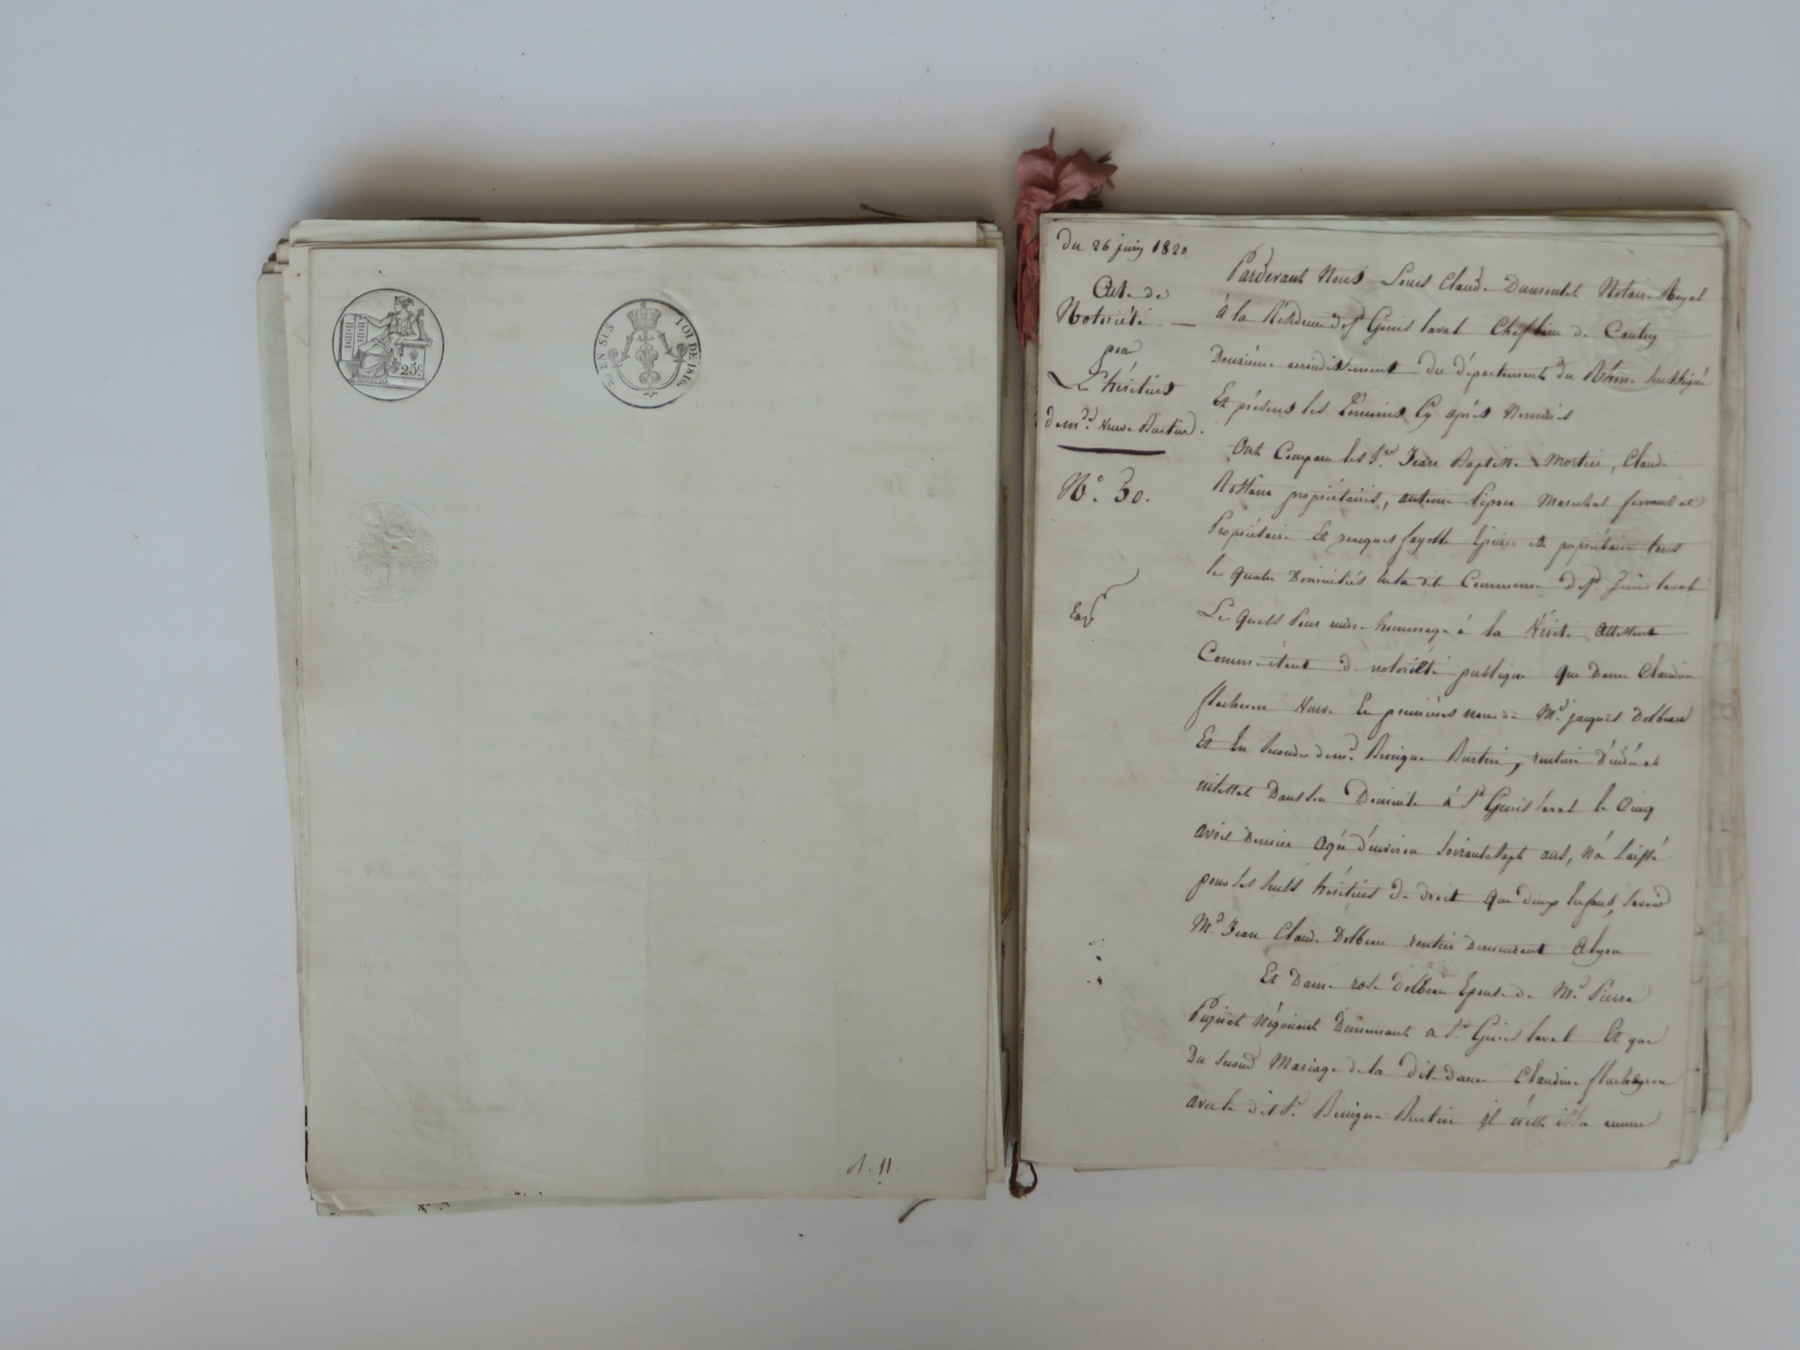 25c
EN SUS
LOI DE 1816
Du 26 juin 1820
Acte de
Notoriété
pour
Les héritiers
de md. Veuve Burtin.
N°. 30.
Pardevant Nous Louis Claude Notaire Royal
à la Résidence de st Genis laval Cheflieu de Canton
Deuxième arrondissement du département du Rhône soussigné
Et présens les Témoins Cy après Nommés
Ont Comparu les Srs. Jean Baptiste Mortier, Claude
propriétaires, antoine Pipon Maréchal ferrant et
Propriétaire Et jacques fayolle Epicier et propriétaire tous
les quatre Domiciliés en la dite Commune de st. Genis laval
Les quels Pour rendre hommage à la Vérité attestent
Comme étant de notoriété publique que Dame Claudine
flacheron Veuve En premières noces de Mr. jacques Dolbeau
Et En secondes de mr. Benigne Burtin, rentière Décédée ab
intestat Dans son Domicile à St Genis laval le Cinq
avril Dernier agée d'environ soixante sept ans, n'a laissé
pour ses seuls héritiers de droit que deux Enfans, savoir
Mr. Jean Claude Dolbeau rentier Demeurant à lyon
Et Dame rose Dolbeau Epouse de Mr. Pierre
Négociant Demeurant à St. Genis laval Et que
Du second Mariage de la dite dame Claudine flacheron
avec le dit Sr. Benigne Burtin il n'est issu aucun